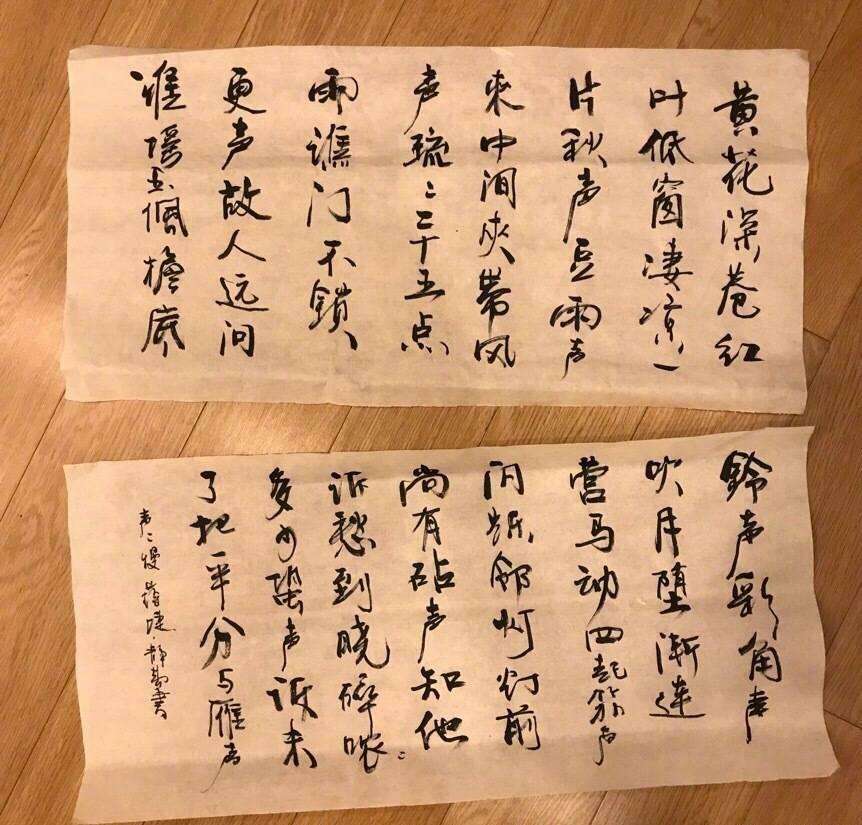 黄花深巷红
叶低窗凄凉一
片秋声豆雨声
来中间夹带风
声疏〻二十五点
雨谯门不鎖
更声故人远问
谁摇玉佩檐底
鈴声彩角声
吹月堕渐连
营马动四起笳声
闪烁邻灯灯前
尚有砧声知他
诉愁到晓碎哝〻
多少蛩声诉未
了把一半分与雁声
声〻慢 蒋捷 静书